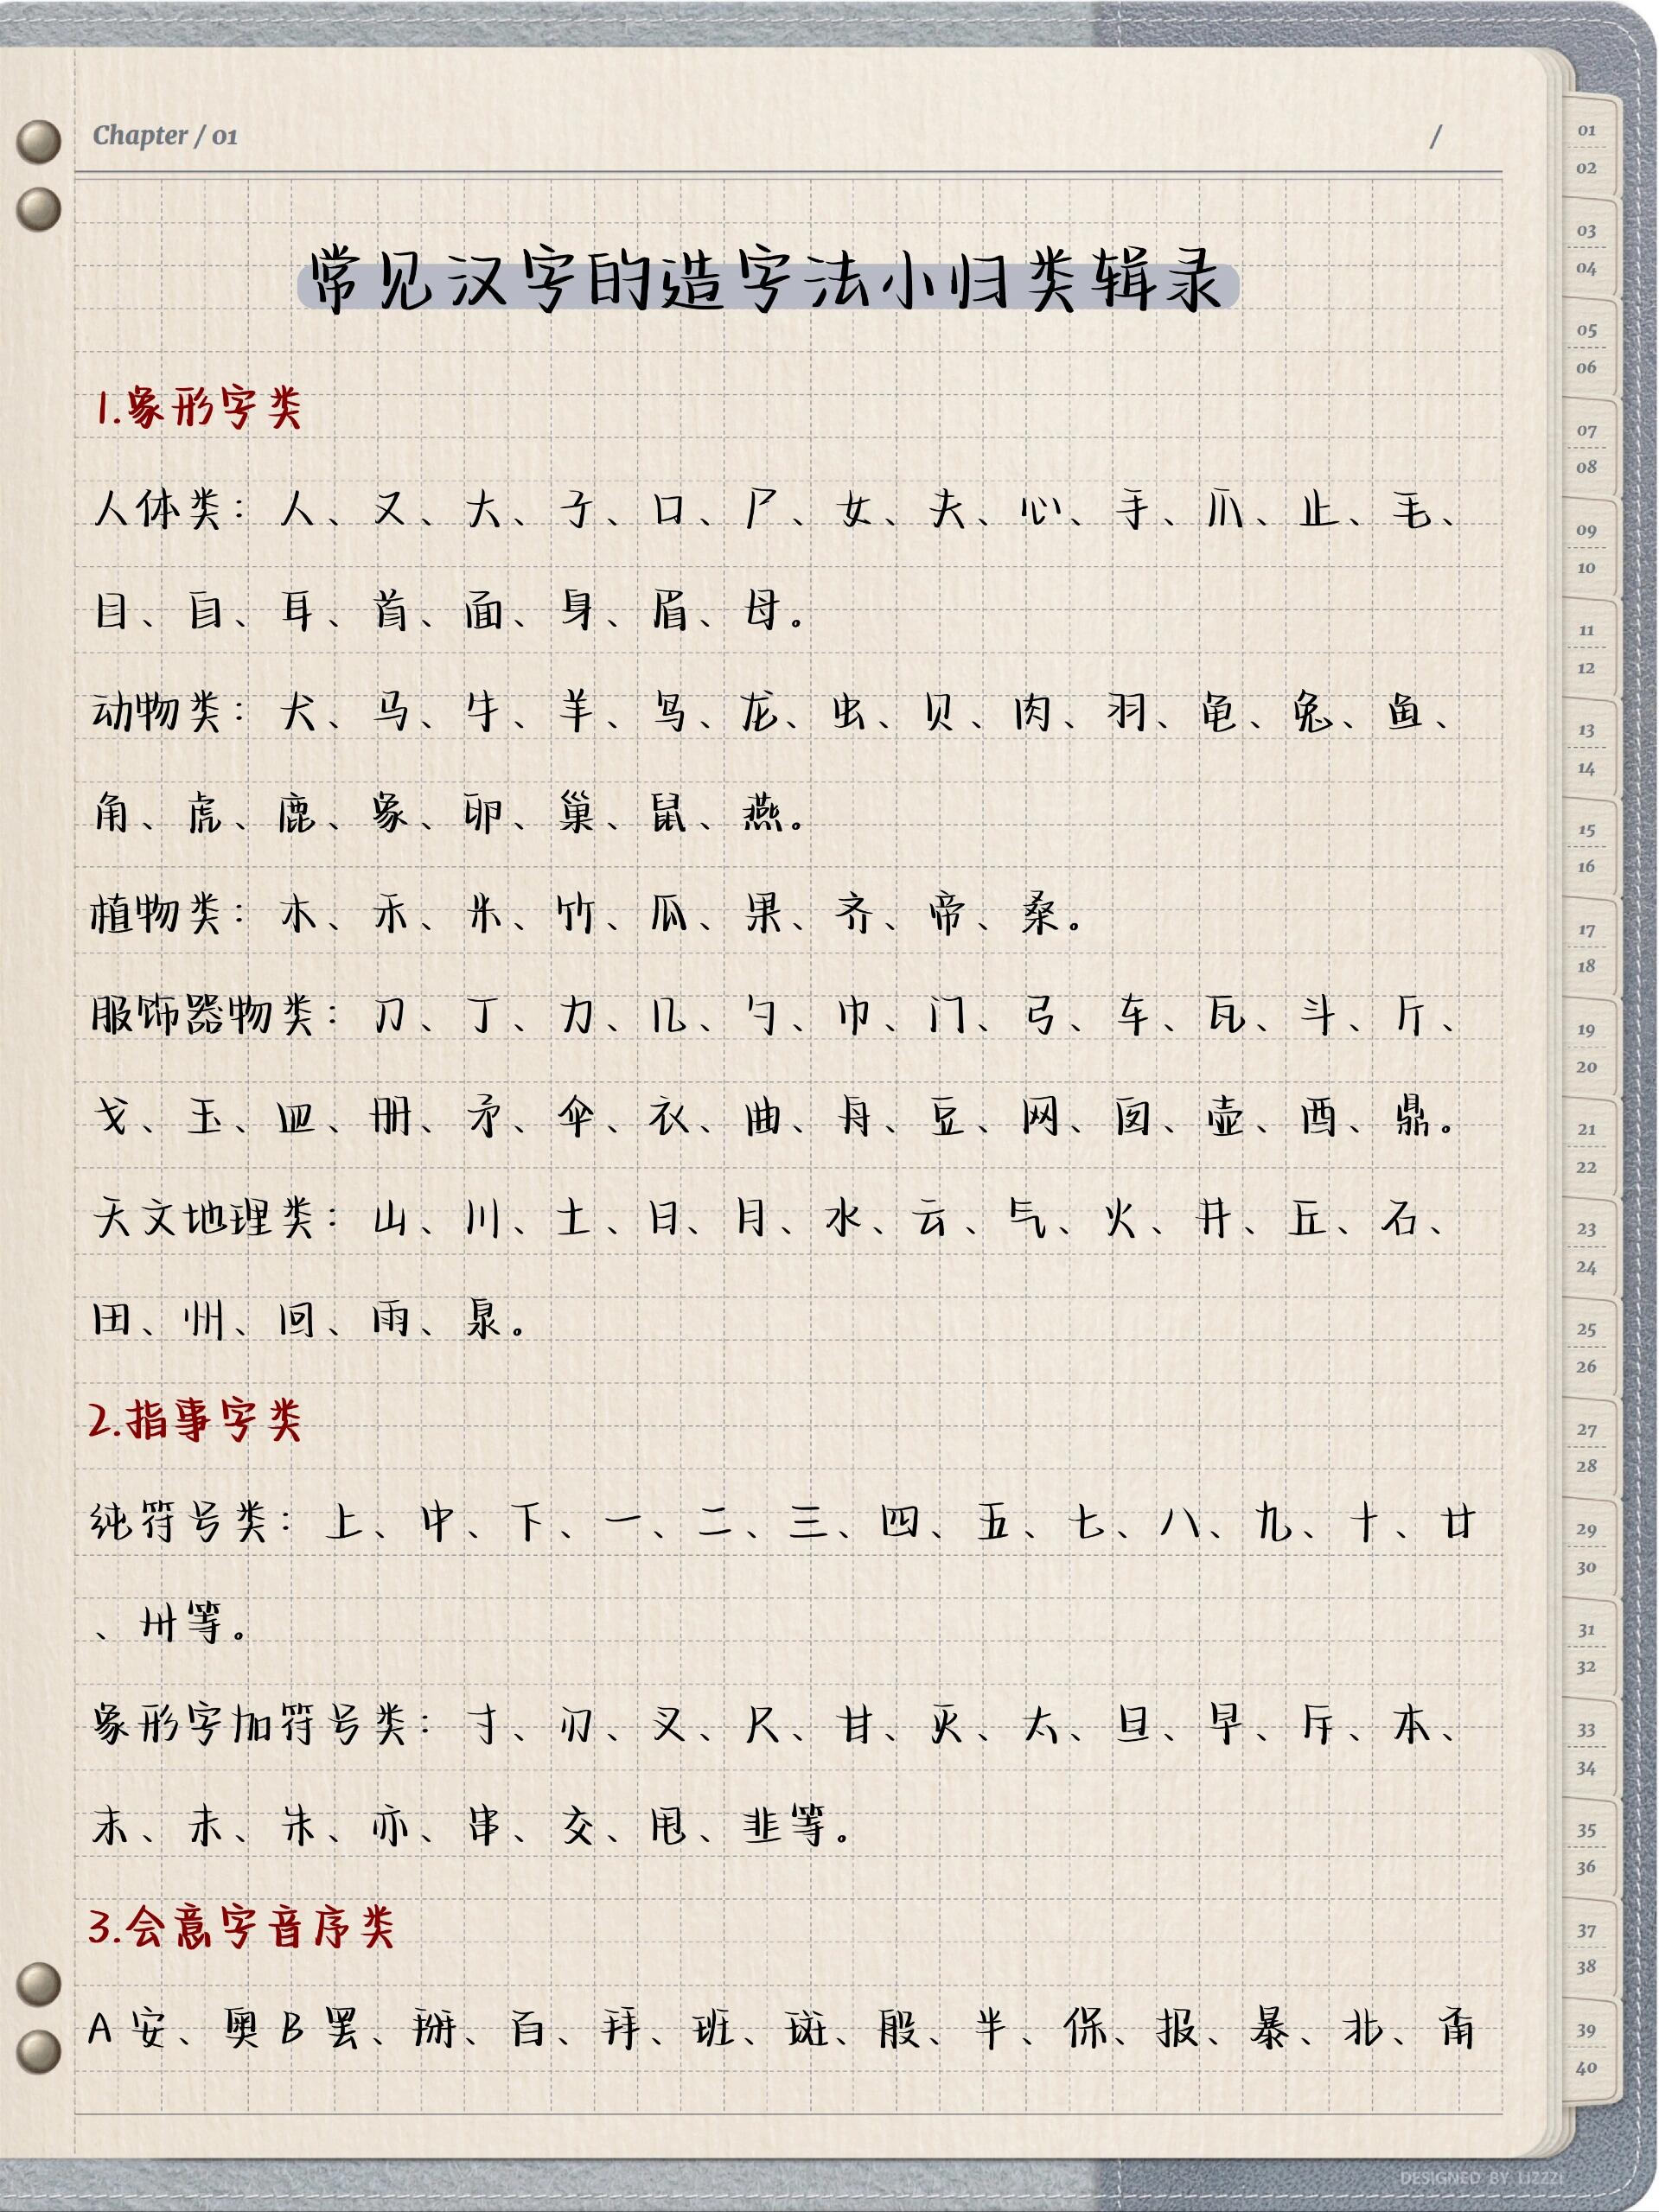 Chapter / 01
/
常见汉字的造字法小归类辑录
1.象形字类
人体类：人、又、大、子、口、尸、女、夫、心、手、爪、止、毛、
目、自、耳、首、面、身、眉、母。
动物类：犬、马、牛、羊、鸟、龙、虫、贝、肉、羽、龟、兔、鱼、
角、虎、鹿、象、卵、巢、鼠、燕。
植物类：木、禾、米、竹、瓜、果、齐、帝、桑。
服饰器物类：刀、丁、力、几、勺、巾、门、弓、车、瓦、斗、斤、
戈、玉、皿、册、矛、伞、衣、曲、舟、豆、网、囱、壶、酉、鼎。
天文地理类：山、川、土、日、月、水、云、气、火、井、丘、石、
田、州、回、雨、泉。
2.指事字类
纯符号类：上、中、下、一、二、三、四、五、七、八、九、十、廿
、卅等。
象形字加符号类：寸、刃、叉、尺、甘、灭、太、旦、早、斥、本、
末、未、朱、亦、串、交、甩、韭等。
3.会意字音序类
A 安、奥 B 罢、掰、百、拜、班、斑、般、半、保、报、暴、北、甭
01
02
03
04
05
06
07
08
09
10
11
12
13
14
15
16
17
18
19
20
21
22
23
24
25
26
27
28
29
30
31
32
33
34
35
36
37
38
39
40
DESIGNED BY LIZZZI